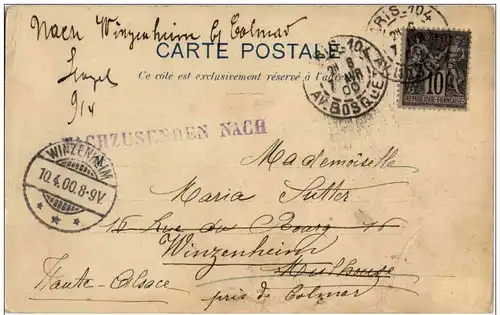 Nach Winzenheim bj Colmar
CARTE POSTALE
Ce côté est exclusivement réservé à l'adresse
9/4
NACHZUSENDEN NACH
PARIS_104
AV. BOSQUET
10
RÉPUBLIQUE FRANÇAISE
WINZENHEIM
10.4.00.8-9V.
Mademoiselle
Maria Sutter
16 Rue du Bourg 16
Winzenheim
Mulhouse
Haute-Alsace
près de Colmar